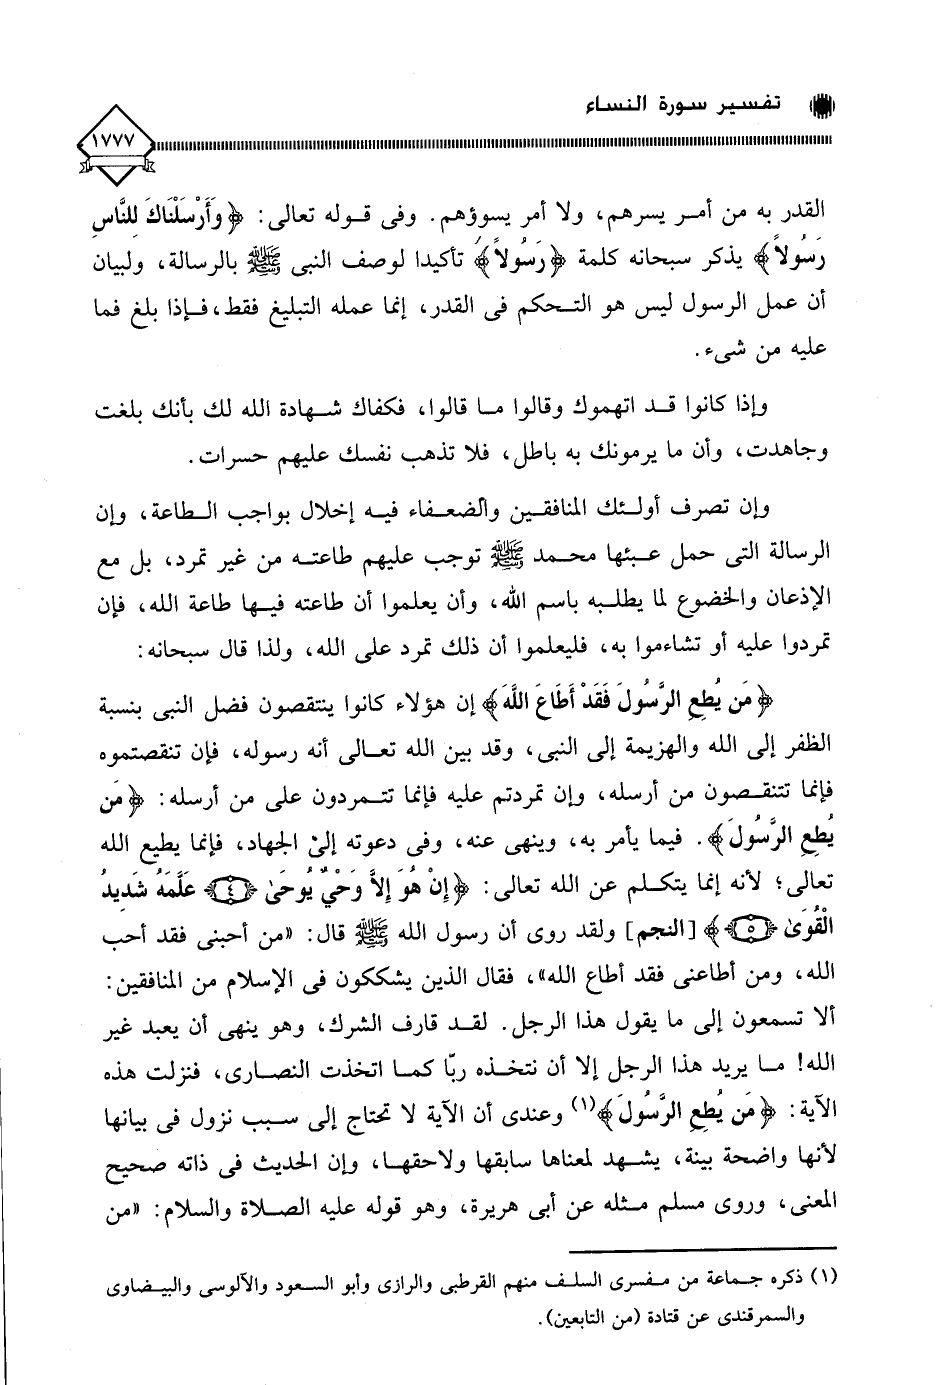 تفسير سورة النساء
١٧٧٧
القدر به من أمر يسرهم، ولا أمر يسوؤهم. وفى قوله تعالى: ﴿وَأَرْسَلْنَاكَ لِلنَّاسِ
رَسُولاً﴾ يذكر سبحانه كلمة ﴿رَسُولاً﴾ تأكيدا لوصف النبى ﷺ بالرسالة، ولبيان
أن عمل الرسول ليس هو التحكم فى القدر، إنما عمله التبليغ فقط، فإذا بلغ فما
عليه من شىء.
وإذا كانوا قد اتهموك وقالوا ما قالوا، فكفاك شهادة الله لك بأنك بلغت
وجاهدت، وأن ما يرمونك به باطل، فلا تذهب نفسك عليهم حسرات.
وإن تصرف أولئك المنافقين والضعفاء فيه إخلال بواجب الطاعة، وإن
الرسالة التى حمل عبئها محمد ﷺ توجب عليهم طاعته من غير تمرد، بل مع
الإذعان والخضوع لما يطلبه باسم الله، وأن يعلموا أن طاعته فيها طاعة الله، فإن
تمردوا عليه أو تشاءموا به، فليعلموا أن ذلك تمرد على الله، ولذا قال سبحانه:
﴿مَن يُطِعِ الرَّسُولَ فَقَدْ أَطَاعَ اللَّهَ﴾ إن هؤلاء كانوا ينتقصون فضل النبى بنسبة
الظفر إلى الله والهزيمة إلى النبى، وقد بين الله تعالى أنه رسوله، فإن تنقصتموه
فإنما تتنقصون من أرسله، وإن تمردتم عليه فإنما تتمردون على من أرسله: ﴿مَن
يُطِعِ الرَّسُولَ﴾. فيما يأمر به، وينهى عنه، وفى دعوته إلى الجهاد، فإنما يطيع الله
تعالى؛ لأنه إنما يتكلم عن الله تعالى: ﴿إِنْ هُوَ إِلاَّ وَحْيٌ يُوحَىٰ ﴿٤﴾ عَلَّمَهُ شَدِيدُ
الْقُوَىٰ ﴿٥﴾﴾ [النجم] ولقد روى أن رسول الله ﷺ قال: «من أحبنى فقد أحب
الله، ومن أطاعنى فقد أطاع الله»، فقال الذين يشككون فى الإسلام من المنافقين:
ألا تسمعون إلى ما يقول هذا الرجل. لقد قارف الشرك، وهو ينهى أن يعبد غير
الله! ما يريد هذا الرجل إلا أن نتخذه ربّا كما اتخذت النصارى، فنزلت هذه
الآية: ﴿مَن يُطِعِ الرَّسُولَ﴾(١) وعندى أن الآية لا تحتاج إلى سبب نزول فى بيانها
لأنها واضحة بينة، يشهد لمعناها سابقها ولاحقها، وإن الحديث فى ذاته صحيح
المعنى، وروى مسلم مثله عن أبى هريرة، وهو قوله عليه الصلاة والسلام: «من
(١) ذكره جماعة من مفسرى السلف منهم القرطبى والرازى وأبو السعود والآلوسى والبيضاوى
والسمرقندى عن قتادة (من التابعين).